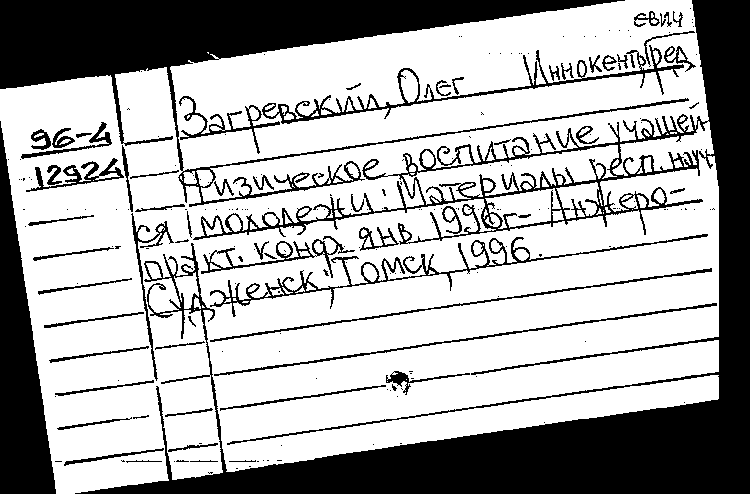 евич
Загревский, Олег Иннокенть, ред
96-4
12924
Физическое воспитание учащей-
ся молодежи: Материалы респ. науч-
практ. конф. янв. 1996г- Анжеро-
Судженск; Томск, 1996.